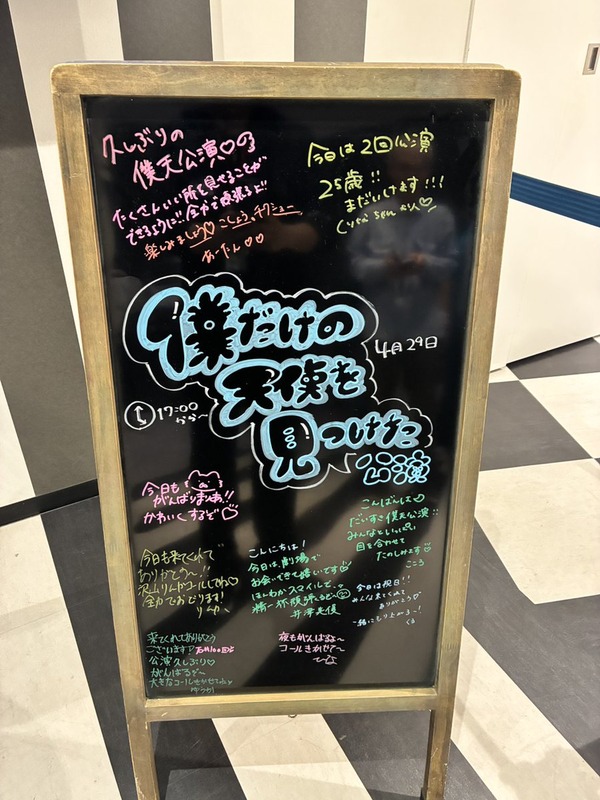 久しぶりの
僕天公演♡
たくさんいい所を見せることが
できるように!! 全力で頑張るど
楽しみましょう♡
あーたん♡♡
今日は2回公演
25歳!!
まだいけます!!!
僕だけの
天使を
見つけた
公演
4月29日
17:00
から〜
今日も
がんばりまぁあ!!
かわいくするぞ♡
こんばんは
だいすき僕天公演!!
みんなといっぱい
目を合わせて
たのしみます♡
こころ
今日も来てくれて
ありがとう〜!!
沢山りんドコールしてね♡
全力でおどります!
こんにちは!
今日は、劇場で
お会いできて嬉しいです♡
ほんわかスマイルで、
精一杯頑張るど〜
今日は祝日!!
みんな来てくれて
ありがとう♡
一緒にもり上がろ〜!
くる
来てくれてありがとう
ございます♡
公演久しぶり♡
がんばるぞ〜
大きなコールきかせてね♪
夜もがんばるよ〜
コールきかせて〜